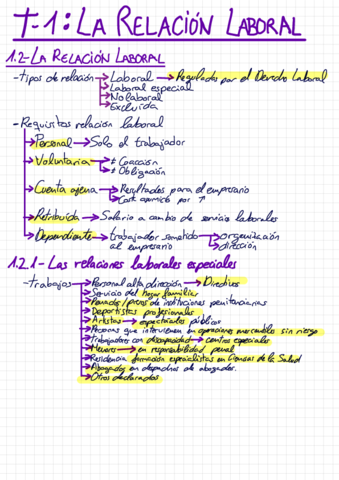 T-1: LA RELACIÓN LABORAL
1.2-LA RELACIÓN LABORAL
-tipos de relación → Laboral → Regulados por el Derecho Laboral
→ Laboral especial
→ No laboral
→ Excluida
-Requisitos relación laboral
→ Personal → Solo el trabajador
→ Voluntaria → ≠ Coacción
→ ≠ Obligación
→ Cuenta ajena → Resultados para el empresario
→ por ↑
→ Retribuida → Salario a cambio de servicio laborales
→ Dependiente → trabajador sometido → organización
al empresario → dirección
1.2.1-Las relaciones laborales especiales
-trabajos → Personal alta dirección → Directivos
→ Servicio del hogar familiar
→ Penados/presos de instituciones penitenciarias
→ Deportistas profesionales
→ Artistas → espectáculos públicos
→ Personas que intervienen en operaciones mercantiles sin riesgo
→ trabajadores con discapacidad → centros especiales
→ Menores → en responsabilidad penal
→ Residencia formación especialistas en Ciencias de la Salud
→ Abogados en despachos de abogados.
→ Otros declarados